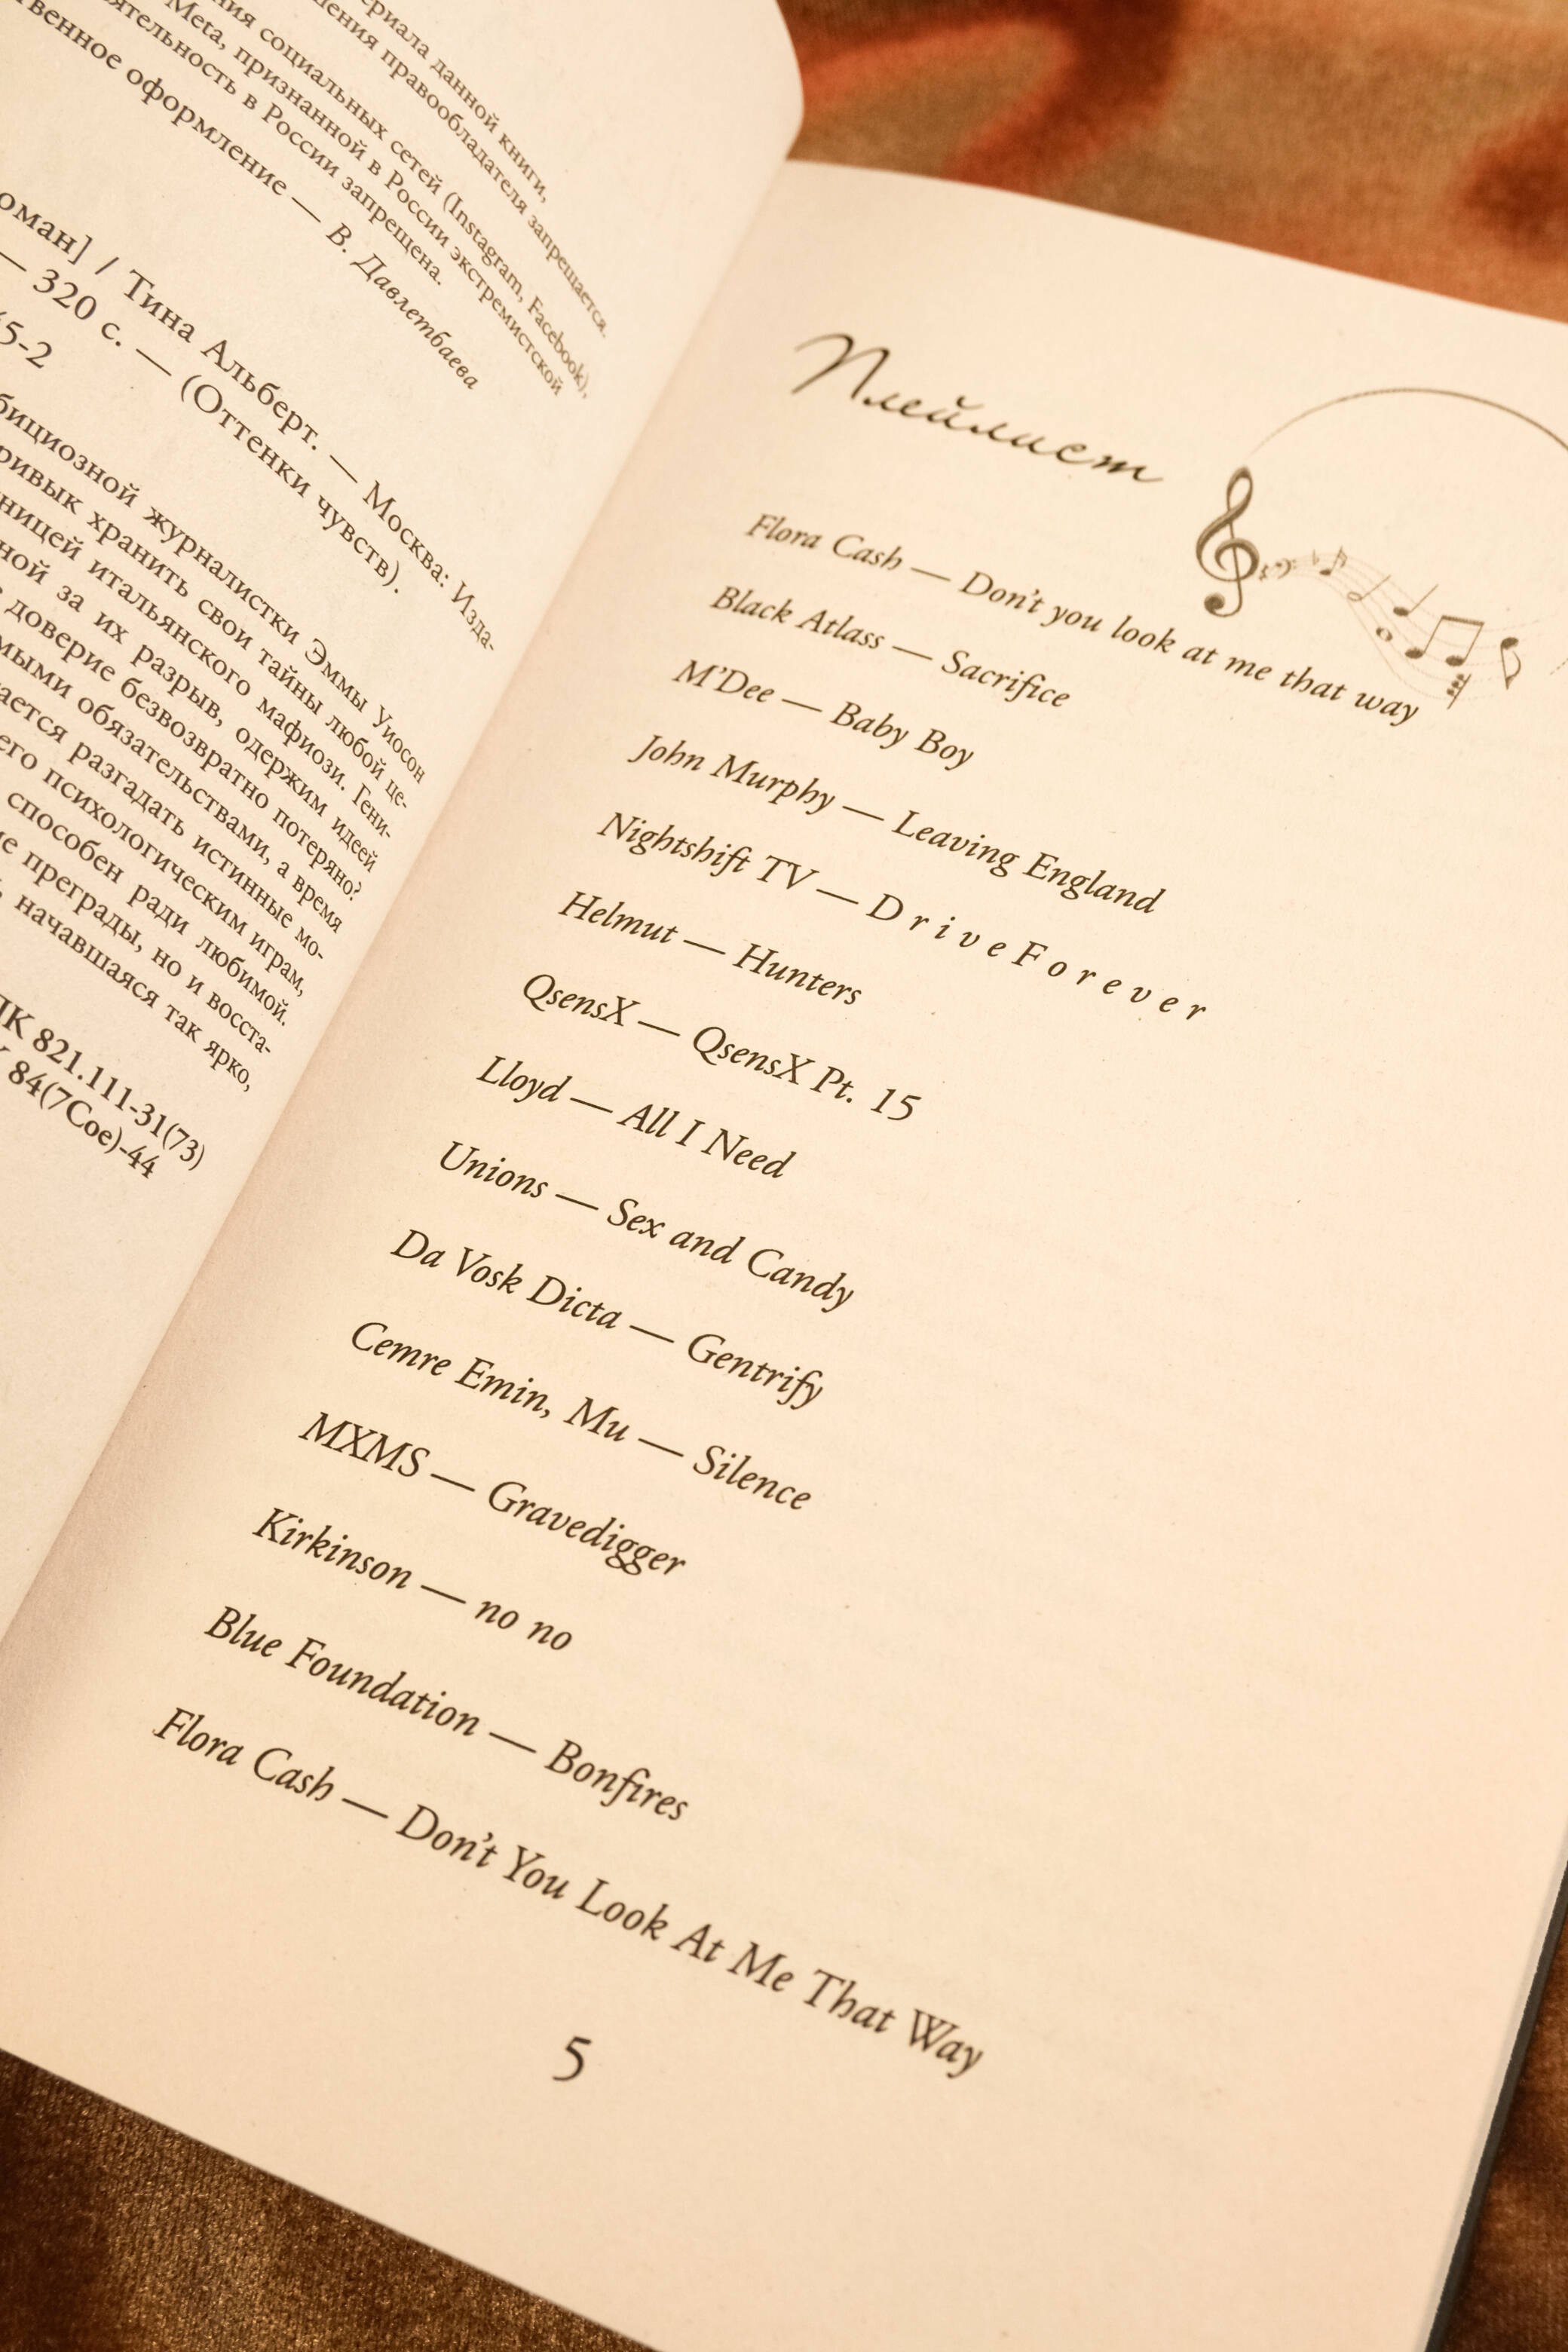 териала данной книги,
шения правообладателя запрещается.
ния социальных сетей (Instagram, Facebook),
Meta, признанной в России экстремистской
ятельность в России запрещена.
твенное оформление — В. Давлетбаева
оман] / Тина Альберт. — Москва: Изда-
— 320 с. — (Оттенки чувств).
5-2
бициозной журналистки Эммы Уиосон
ривык хранить свои тайны любой це-
ницей итальянского мафиози. Гени-
ной за их разрыв, одержим идеей
доверие безвозвратно потеряно?
мыми обязательствами, а время
ается разгадать истинные мо-
его психологическим играм,
способен ради любимой.
ие преграды, но и восста-
начавшаяся так ярко,
ДК 821.111-31(73)
К 84(7Сое)-44
Плейлист
Flora Cash — Don't you look at me that way
Black Atlass — Sacrifice
M'Dee — Baby Boy
John Murphy — Leaving England
Nightshift TV — D r i v e F o r e v e r
Helmut — Hunters
QsensX — QsensX Pt. 15
Lloyd — All I Need
Unions — Sex and Candy
Da Vosk Dicta — Gentrify
Cemre Emin, Mu — Silence
MXMS — Gravedigger
Kirkinson — no no
Blue Foundation — Bonfires
Flora Cash — Don't You Look At Me That Way
5